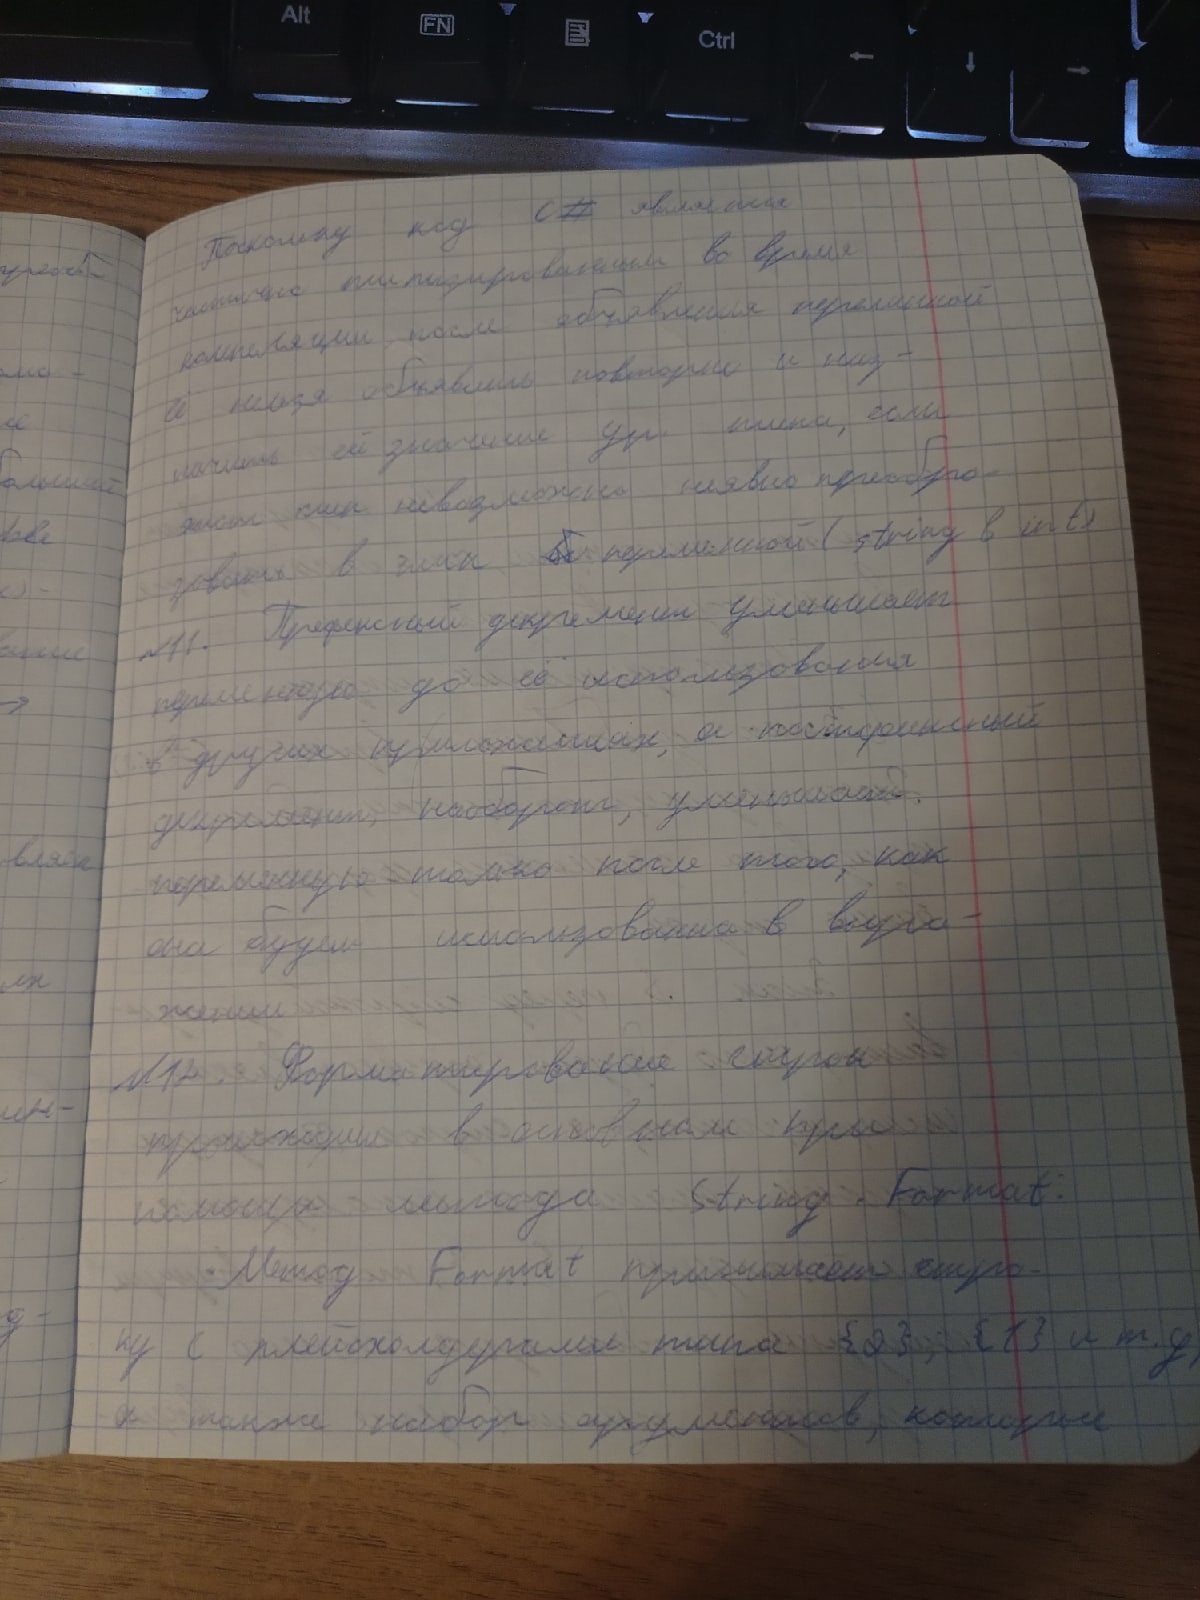 Alt
FN
Ctrl
Поскольку код C# является
статично типизированным во время
компиляции, после объявления переменной
её нельзя объявить повторно и наз-
начить ей значение др. типа, если
этот тип невозможно неявно преобра-
зовать в тип переменной (string в int)
№11. Префиксный декремент уменьшает
переменную до её использования
в других, а постфиксный
декремент, наоборот, уменьшает
переменную только после того, как
она будет использована в выра-
жении
№12. Форматирование строк
происходит в основном при
помощи метода String.Format:
Метод Format принимает стро-
ку с плейсхолдерами типа {0}, {1} и т.д,
а также набор аргументов, которые